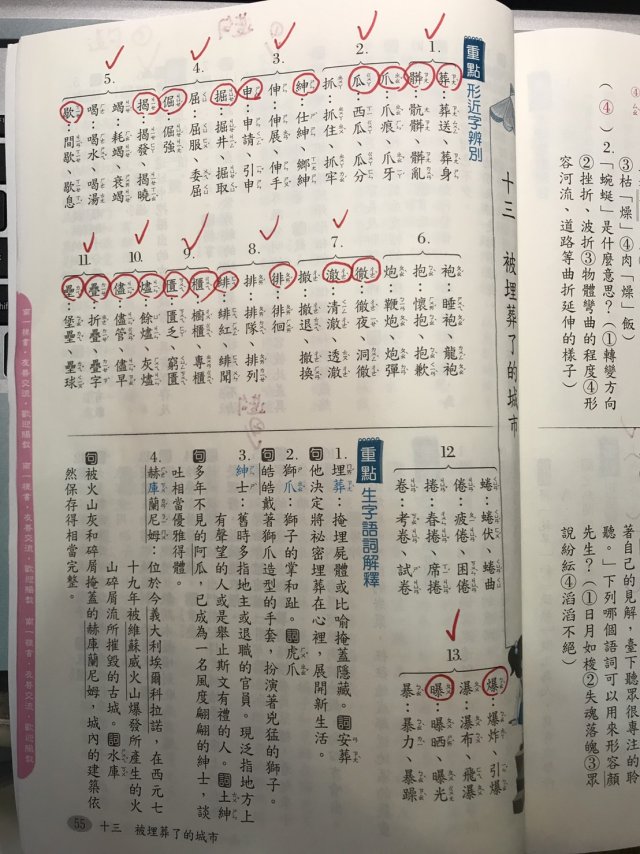 ③枯「燥」④肉「燥」飯
(④) 2.「蜿蜒」是什麼意思？(①轉變方向
②挫折、波折③物體彎曲的程度④形
容河流、道路等曲折延伸的樣子)
著自己的見解，臺下聽眾很專注的聆
聽。」下列哪個語詞可以用來形容顏
先生？(①日月如梭②失魂落魄③眾
說紛紜④滔滔不絕)
十三 被埋葬了的城市
重點 形近字辨別
1.
葬：葬送、葬身
髒：骯髒、髒亂
2.
爪：爪痕、爪牙
瓜：西瓜、瓜分
抓：抓住、抓牢
3.
紳：仕紳、鄉紳
伸：伸展、伸手
申：申請、引申
4.
掘：掘井、掘取
屈：屈服、委屈
倔：倔強
5.
揭：揭發、揭曉
竭：耗竭、衰竭
喝：喝水、喝湯
歇：間歇、歇息
6.
袍：睡袍、龍袍
抱：懷抱、抱歉
炮：鞭炮、炮彈
7.
徹：徹夜、洞徹
澈：清澈、透澈
撤：撤退、撤換
8.
徘：徘徊
排：排隊、排列
緋：緋紅、緋聞
9.
櫃：櫥櫃、專櫃
匱：匱乏、窮匱
10.
燼：餘燼、灰燼
儘：儘管、儘早
11.
疊：折疊、疊字
壘：堡壘、壘球
12.
蜷：蜷伏、蜷曲
倦：疲倦、困倦
捲：春捲、席捲
卷：考卷、試卷
13.
爆：爆炸、引爆
瀑：瀑布、飛瀑
曝：曝晒、曝光
暴：暴力、暴躁
重點 生字語詞解釋
1.埋葬：掩埋屍體或比喻掩蓋隱藏。安葬
句他決定將祕密埋葬在心裡，展開新生活。
2.獅爪：獅子的掌和趾。虎爪
句皓皓戴著獅爪造型的手套，扮演著兇猛的獅子。
3.紳士：舊時多指地主或退職的官員。現泛指地方上
有聲望的人或是舉止斯文有禮的人。土紳
句多年不見的阿瓜，已成為一名風度翩翩的紳士，談
吐相當優雅得體。
4.赫庫蘭尼姆：位於今義大利埃爾科拉諾，在西元七
十九年被維蘇威火山爆發所產生的火
山碎屑流所摧毀的古城。水庫
句被火山灰和碎屑掩蓋的赫庫蘭尼姆，城內的建築依
然保存得相當完整。
南一授書，友善交流，歡迎賜教
55 十三 被埋葬了的城市